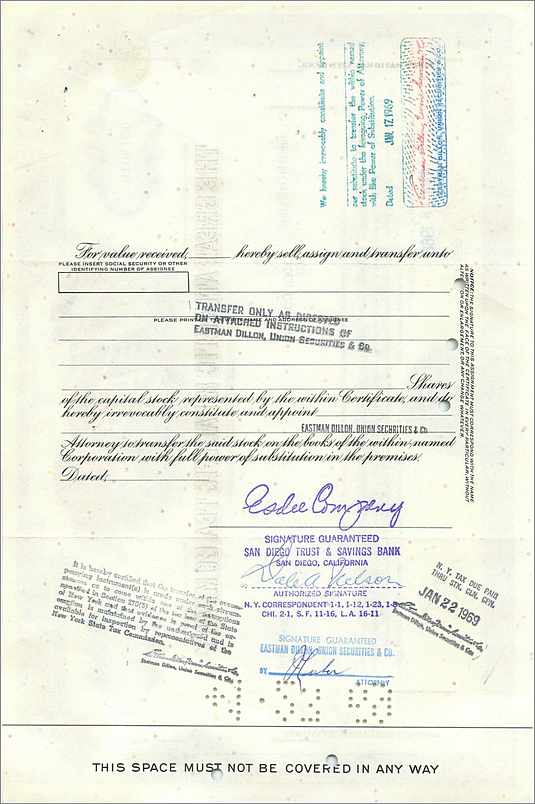 We hereby irrevocably constitute and appoint
our substitute to transfer the within named
stock under the foregoing Power of Attorney,
with like Power of Substitution.
Dated JAN 17 1969
For value received, hereby sell, assign and transfer unto
PLEASE INSERT SOCIAL SECURITY OR OTHER
IDENTIFYING NUMBER OF ASSIGNEE
TRANSFER ONLY AS DIRECTED
ON ATTACHED INSTRUCTIONS OF
EASTMAN DILLON, UNION SECURITIES & CO.
PLEASE PRINT NAME AND ADDRESS OF ASSIGNEE
Shares
of the capital stock represented by the within Certificate, and do
hereby irrevocably constitute and appoint
EASTMAN DILLON, UNION SECURITIES & Co.
Attorney to transfer the said stock on the books of the within named
Corporation with full power of substitution in the premises.
Dated,
NOTICE: THE SIGNATURE TO THIS ASSIGNMENT MUST CORRESPOND WITH THE NAME
AS WRITTEN UPON THE FACE OF THE CERTIFICATE IN EVERY PARTICULAR, WITHOUT
ALTERATION OR ENLARGEMENT OR ANY CHANGE WHATEVER.
Esdee Company
SIGNATURE GUARANTEED
SAN DIEGO TRUST & SAVINGS BANK
SAN DIEGO, CALIFORNIA
Dale A. Nelson
AUTHORIZED SIGNATURE
N. Y. CORRESPONDENT 1-1, 1-12, 1-23, 1-8
CHI. 2-1, S. F. 11-16, L.A. 16-11
SIGNATURE GUARANTEED
EASTMAN DILLON, UNION SECURITIES & CO.
BY
ATTORNEY
It is hereby certified that the transfer of the accom-
panying instrument(s) is under such circum-
stances as to come within one of the exceptions
specified in Section 270(5) of the tax law of the State
of New York and that evidence in proof of the ex-
emption is maintained by the undersigned and is
available for inspection by representatives of the
New York State Tax Commission.
Eastman Dillon, Union Securities & Co.
N. Y. TAX DUE PAID
THRU STK. CLR. CPN.
JAN 22 1969
Eastman Dillon, Union Securities & Co.
THIS SPACE MUST NOT BE COVERED IN ANY WAY